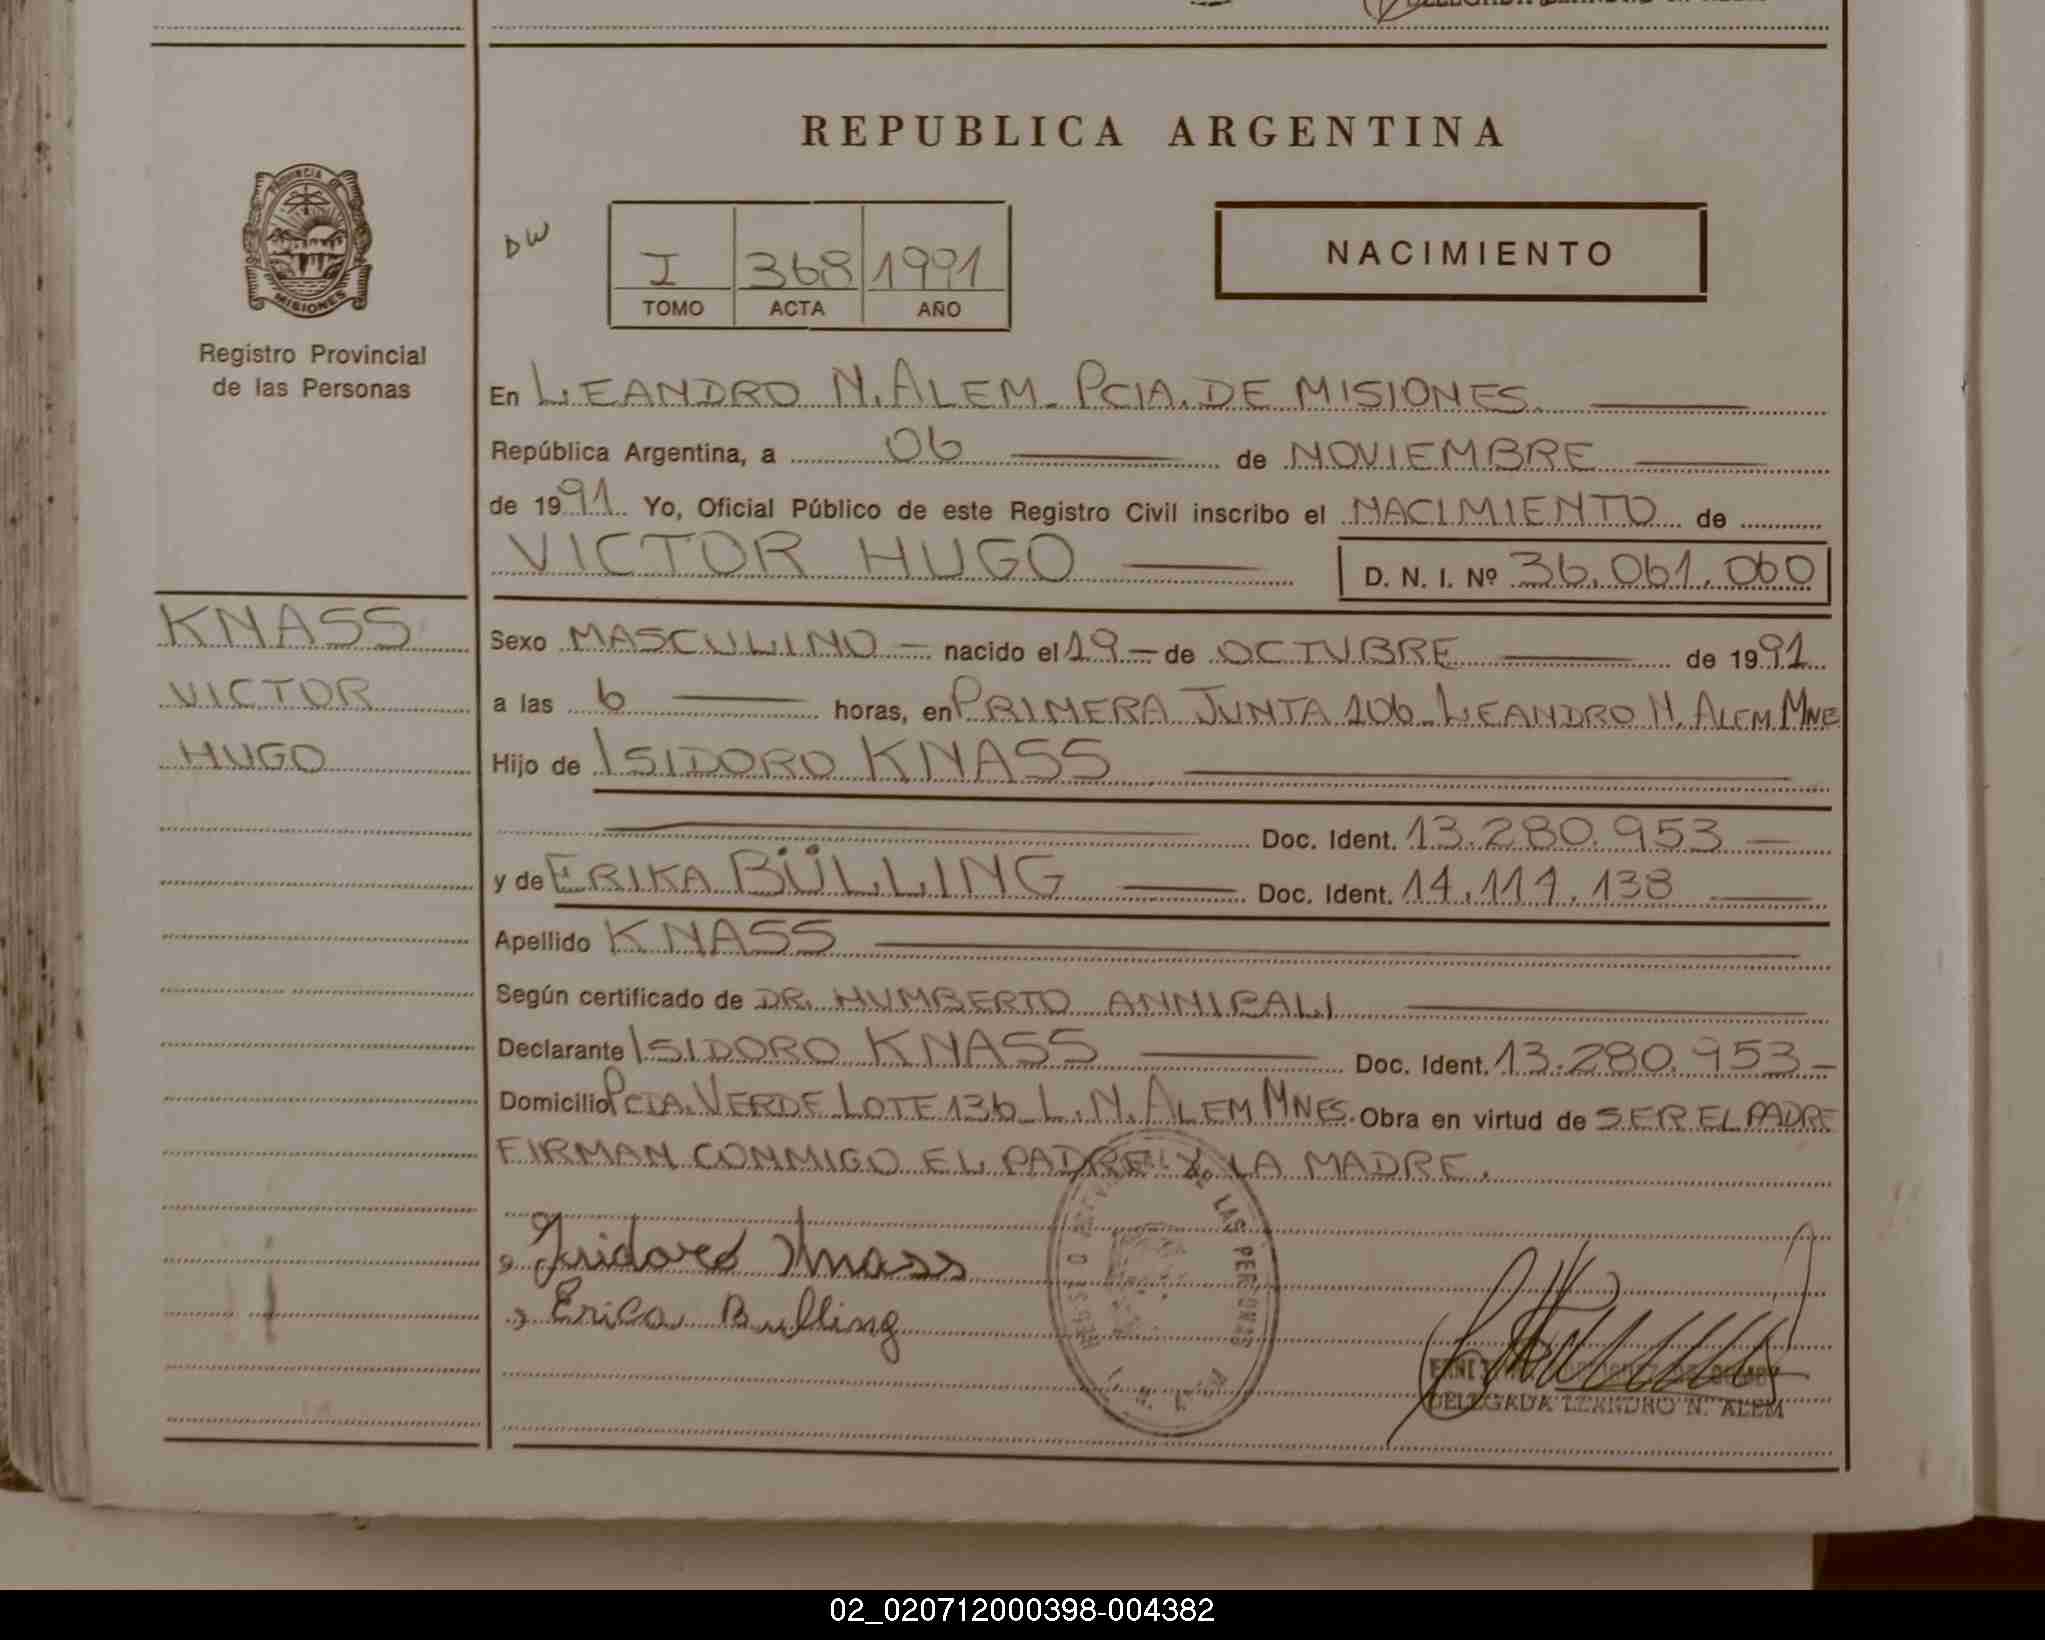 REPUBLICA ARGENTINA
PROVINCIA DE
MISIONES
Registro Provincial
de las Personas
DW
I 368 1991
TOMO ACTA AÑO
NACIMIENTO
En LEANDRO N. ALEM - PCIA. DE MISIONES.
República Argentina, a 06 de NOVIEMBRE
de 1991. Yo, Oficial Público de este Registro Civil inscribo el NACIMIENTO de
VICTOR HUGO D. N. I. Nº 36.061.060
KNASS
VICTOR
HUGO
Sexo MASCULINO - nacido el 19 - de OCTUBRE de 1991
a las 6 horas, en PRIMERA JUNTA 106 - LEANDRO N. ALEM Mnes
Hijo de ISIDORO KNASS
Doc. Ident. 13.280.953 -
y de ERIKA BÜLLING Doc. Ident. 14.111.138
Apellido KNASS
Según certificado de DR. HUMBERTO ANNIBALI
Declarante ISIDORO KNASS Doc. Ident. 13.280.953 -
Domicilio PCIA. VERDE LOTE 136 - L. N. ALEM MNES. Obra en virtud de SER EL PADRE
FIRMAN CONMIGO EL PADRE Y LA MADRE.
Isidoro Knass
Erica Bulling
DE LAS PERSONAS
DELEGADA LEANDRO N. ALEM
02_020712000398-004382